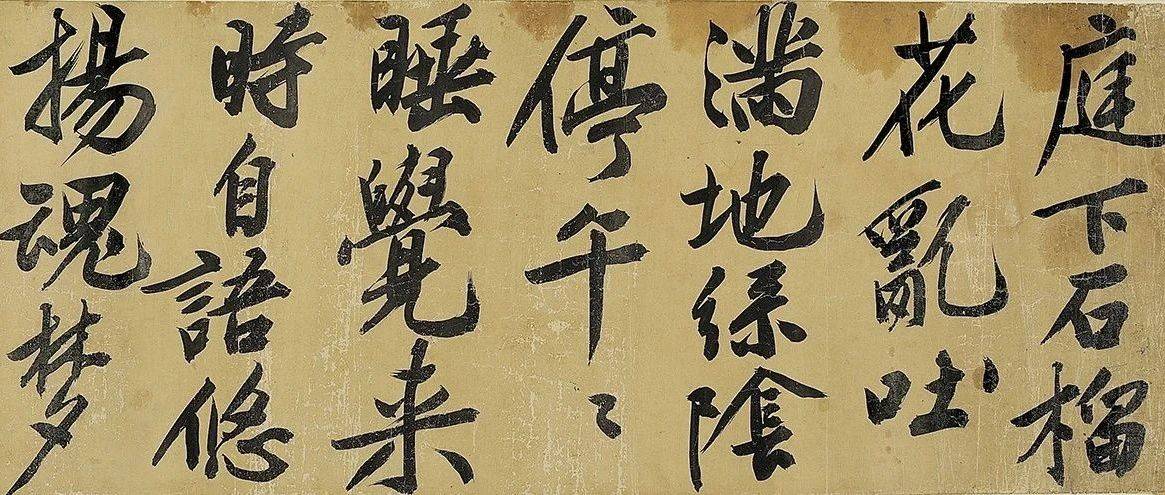 庭下石榴
花亂吐
滿地綠陰
停午〻
睡覺来
時自語悠
揚魂梦